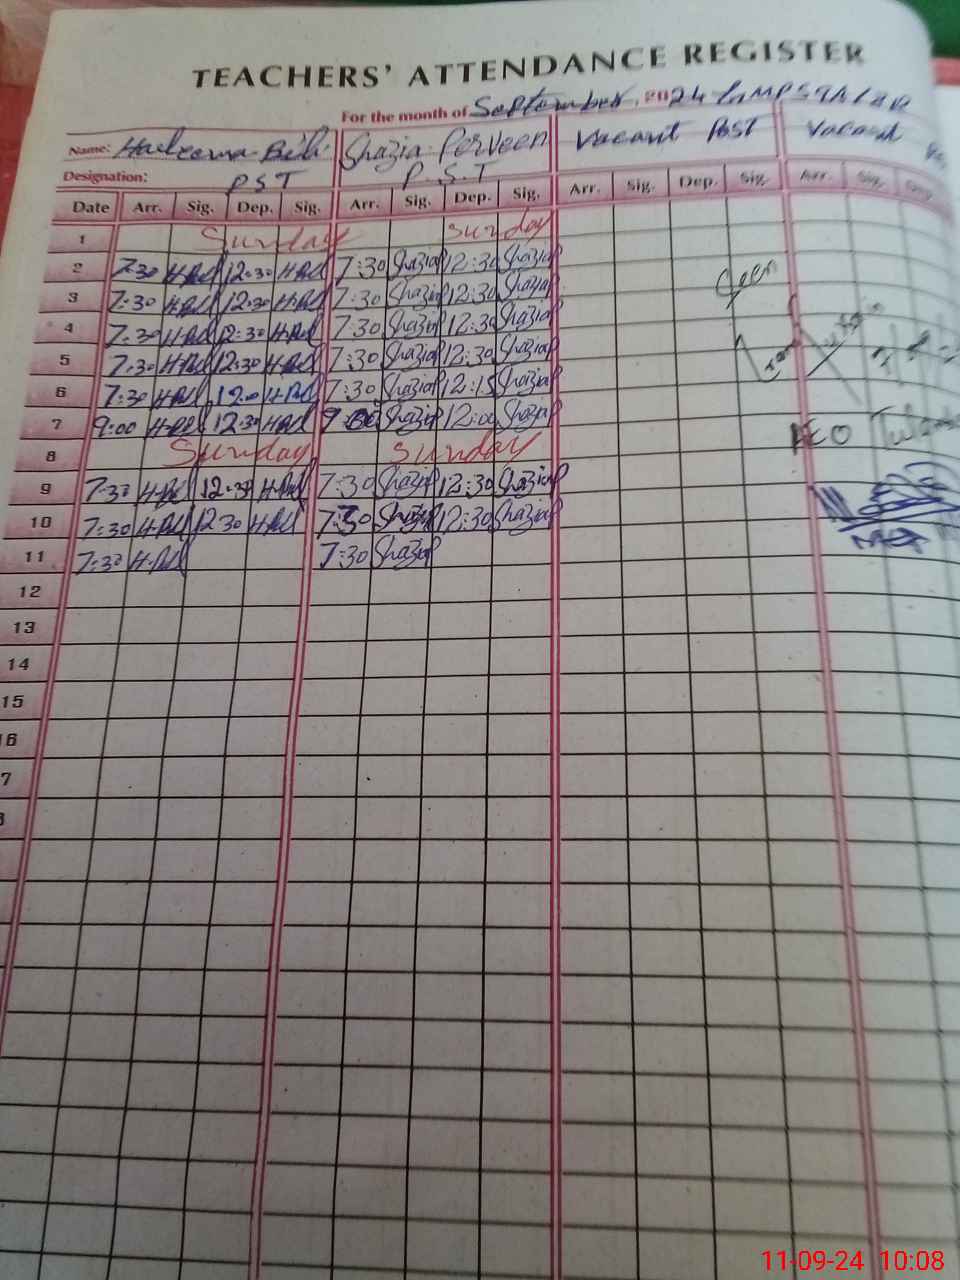 TEACHERS' ATTENDANCE REGISTER
For the month of September, 2024
Name: Haleema Bibi Shazia Perveen Vacant Post Vacant
Designation: PST P.S.T
Date Arr. Sig. Dep. Sig. Arr. Sig. Dep. Sig. Arr. Sig. Dep. Sig. Arr. Sig.
1 Sunday Sunday
2 7:30 H.Bibi 12:30 H.Bibi 7:30 ShaziaP 12:30 ShaziaP
3 7:30 H.Bibi 12:30 H.Bibi 7:30 ShaziaP 12:30 ShaziaP
4 7:30 H.Bibi 12:30 H.Bibi 7:30 ShaziaP 12:30 ShaziaP
5 7:30 H.Bibi 12:30 H.Bibi 7:30 ShaziaP 12:30 ShaziaP
6 7:30 H.Bibi 12:00 H.Bibi 7:30 ShaziaP 12:15 ShaziaP
7 9:00 H.Bibi 12:30 H.Bibi 9:00 ShaziaP 12:00 ShaziaP
AEO
8 Sunday Sunday
9 7:30 H.Bibi 12:30 H.Bibi 7:30 ShaziaP 12:30 ShaziaP
10 7:30 H.Bibi 12 30 H.Bibi 7:30 ShaziaP 12:30 ShaziaP
11 7:30 H.Bibi 7:30 ShaziaP
12
13
14
15
16
7
11-09-24 10:08